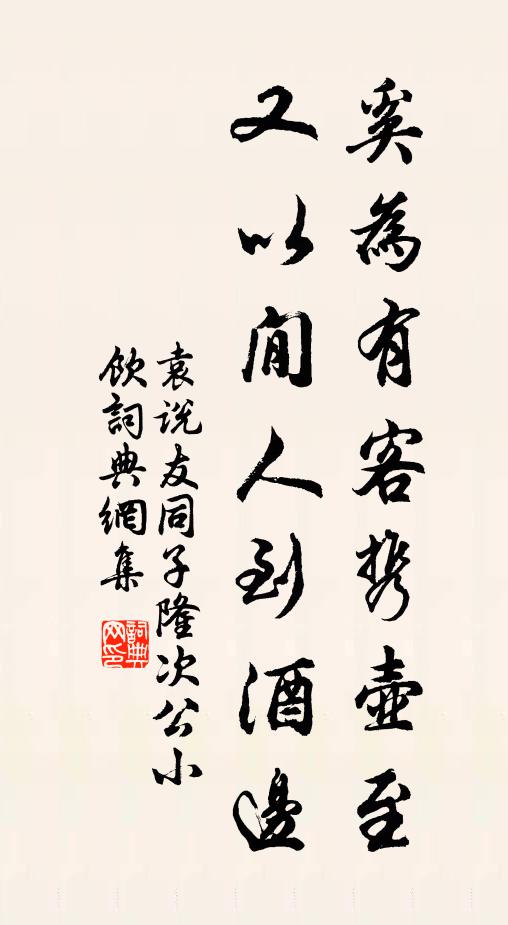 奚為有客携壺至
又以閒人到酒邊
袁说友同子隆次公小
飲詞典網集
詞典網印